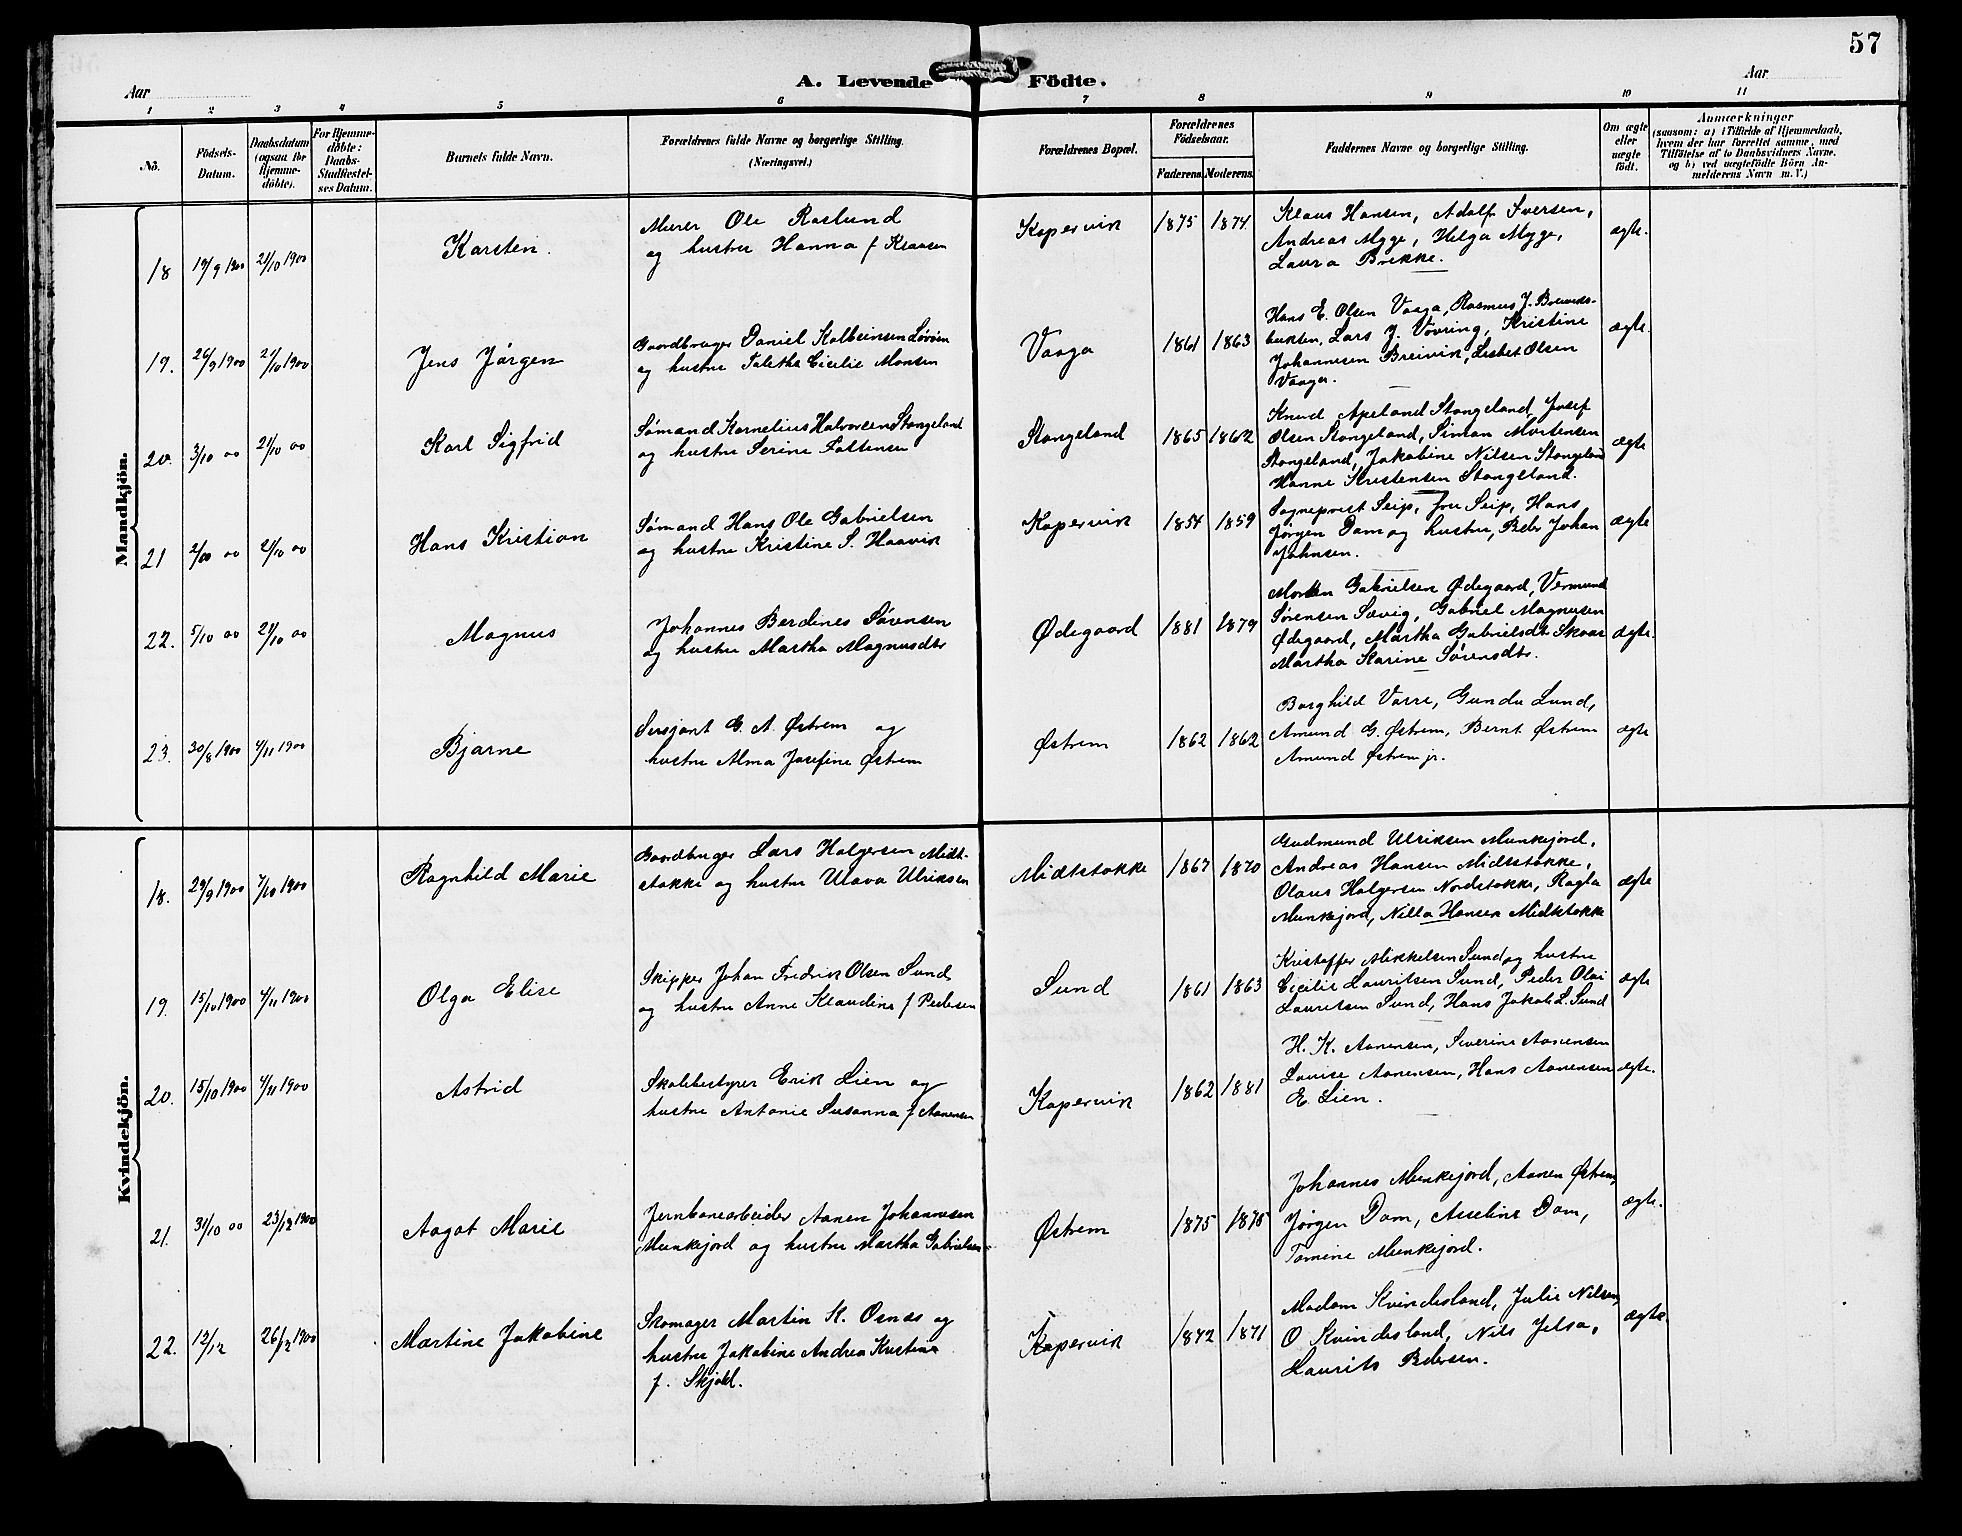 57
A. Levende Födte.
Aar
Aar
1 2 3 4 5 6 7 8 9 10 11
Nö.
Födsels-Datum.
Daabsdatum (ogsaa for Hjemmedöbte).
For Hjemmedöbte: Daabs-Stadfæstelses Datum.
Barnets fulde Navn.
Forældrenes fulde Navne og borgerlige Stilling.
(Næringsvei.)
Forældrenes Bopæl.
Forældrenes Födselsaar.
Faderens. Moderens.
Faddernes Navne og borgerlige Stilling.
Om ægte eller uægte födt.
Anmærkninger
(saasom: a) i Tilfælde af Hjemmedaab,
hvem der har forrettet samme, med
Tilföielse af to Daabsvidners Navne,
og b) ved uægtefödte Börn An-
melderens Navn m. V.)
Mandkjön.
18 19/9 1900 21/10 1900 Karsten.
Murer Ole Raslund
og hustru Hanna f. Klaasen
Kopervik 1875 1874
Klaus Hansen, Adolf Iversen,
Andreas Myge, Helga Myge,
Laura Brekke.
ægte.
19. 26/9 1900 21/10 1900 Jens Jørgen
Gaardbruger Daniel Kolbeinsen
og hustru Taletha Cicilie Monsen
Vaaga 1861 1863
Hans E. Olsen Vaaga, Rasmus J.
Lars J. Vovring, Kristine
Johannesen Breivik, Lisbet Olsen
Vaaga.
ægte.
20. 3/10 00 21/10 00 Karl Sigfrid
Sømand Kornelius Halvorsen Stangeland
og hustru Serine
Stangeland 1865 1862
Knud Apeland Stangeland, Josef
Olsen Stangeland, Simon Mortensen
Stangeland, Jakobine Nilsen Stangeland
Hanne Kristensen Stangeland.
ægte
21 00 21/10 00 Hans Kristian
Sømand Hans Ole Gabrielsen
og hustru Kristine S. Haavik
Kopervik 1854 1859
Sogneprest Seip, fru Seip, Hans
Jørgen Dam og hustru, Peder Johan
Johnsen.
ægte
22. 5/10 00 21/10 00 Magnus
Johannes Berdines Sørensen
og hustru Martha Magnusdtr
Ødegaard 1881 1879
Morten Gabrielsen Ødegaard, Vermund
Sørensen Sævig, Gabriel Magnusen
Ødegaard, Martha Gabrielsdtr Skaar
Martha Karine Sørensdtr.
ægte.
23. 30/8 1900 4/11 1900 Bjarne
Sersjant G. A. Østrem og
hustru Alma Josefine Østrem
Østrem 1862 1862
Borghild Varre, Gunda Lund,
Amund G. Østrem, Bernt Østrem
Amund Østrem jr.
ægte
Kvindekjön.
18. 29/9 1900 7/10 1900 Ragnhild Marie
Gaardbruger Lars Holgersen Midt-
stokke og hustru Olava Ulriksen
Midtstokke 1867 1870
Gudmund Ulriksen Munkejord,
Andreas Hansen Midtstokke,
Olaus Holgersen Nordstokke, Ragla
Munkejord, Nilla Hansen Midtstokke
ægte
19. 15/10 1900 4/11 1900 Olga Elise
Skipper Johan Fredrik Olsen Sund
og hustru Anne Klaudine f Pedersen
Sund 1861 1863
Kristoffer Mikkelsen Sund og hustru
Cicilie Lauritsen Sund, Peder Olai
Lauritsen Sund, Hans Jakob L. Sund
ægte
20. 15/10 1900 4/11 1900 Astrid
Skolebestyrer Erik Lien og
hustru Antonie Susanna f Aanensen
Kopervik 1862 1881
H. K. Aanensen, Severine Aanensen
Louise Aanensen, Hans Aanensen
E. Lien.
ægte.
21. 31/10 00 23/12 1900 Aagot Marie
Jernbanearbeider Aanen Johannesen
Munkejord og hustru Martha Gabrielsen
Østrem 1875 1875
Johannes Munkejord, Aanen Østrem,
Jørgen Dam, Asseline Dam,
Tomine Munkejord.
ægte.
22. 12/12 26/12 1900 Martine Jakobine
Skomager Martin K. Osnes og
hustru Jakobine Andrea Kristine
f. Skjold.
Kopervik 1872 1871
Madam Kvindesland, Julie Nilsen,
O Kvindesland, Nils Jelsa,
Laurits Pedersen.
ægte